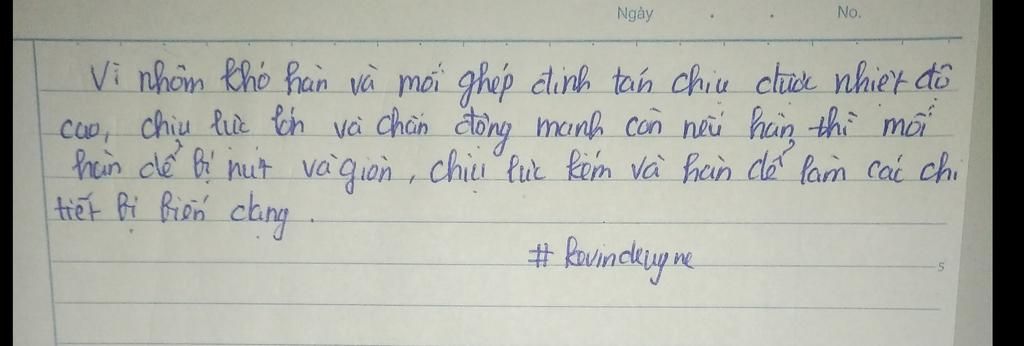 Ngày . . No.
Vì nhôm khó hàn và mối ghép đinh tán chịu được nhiệt độ
cao, chịu lực lớn và chấn động mạnh còn nếu hàn thì mối
hàn dể bị nứt và giòn, chịu lực kém và hàn dể làm các chi
tiết bị biến dạng.
# kevindeuyne
5